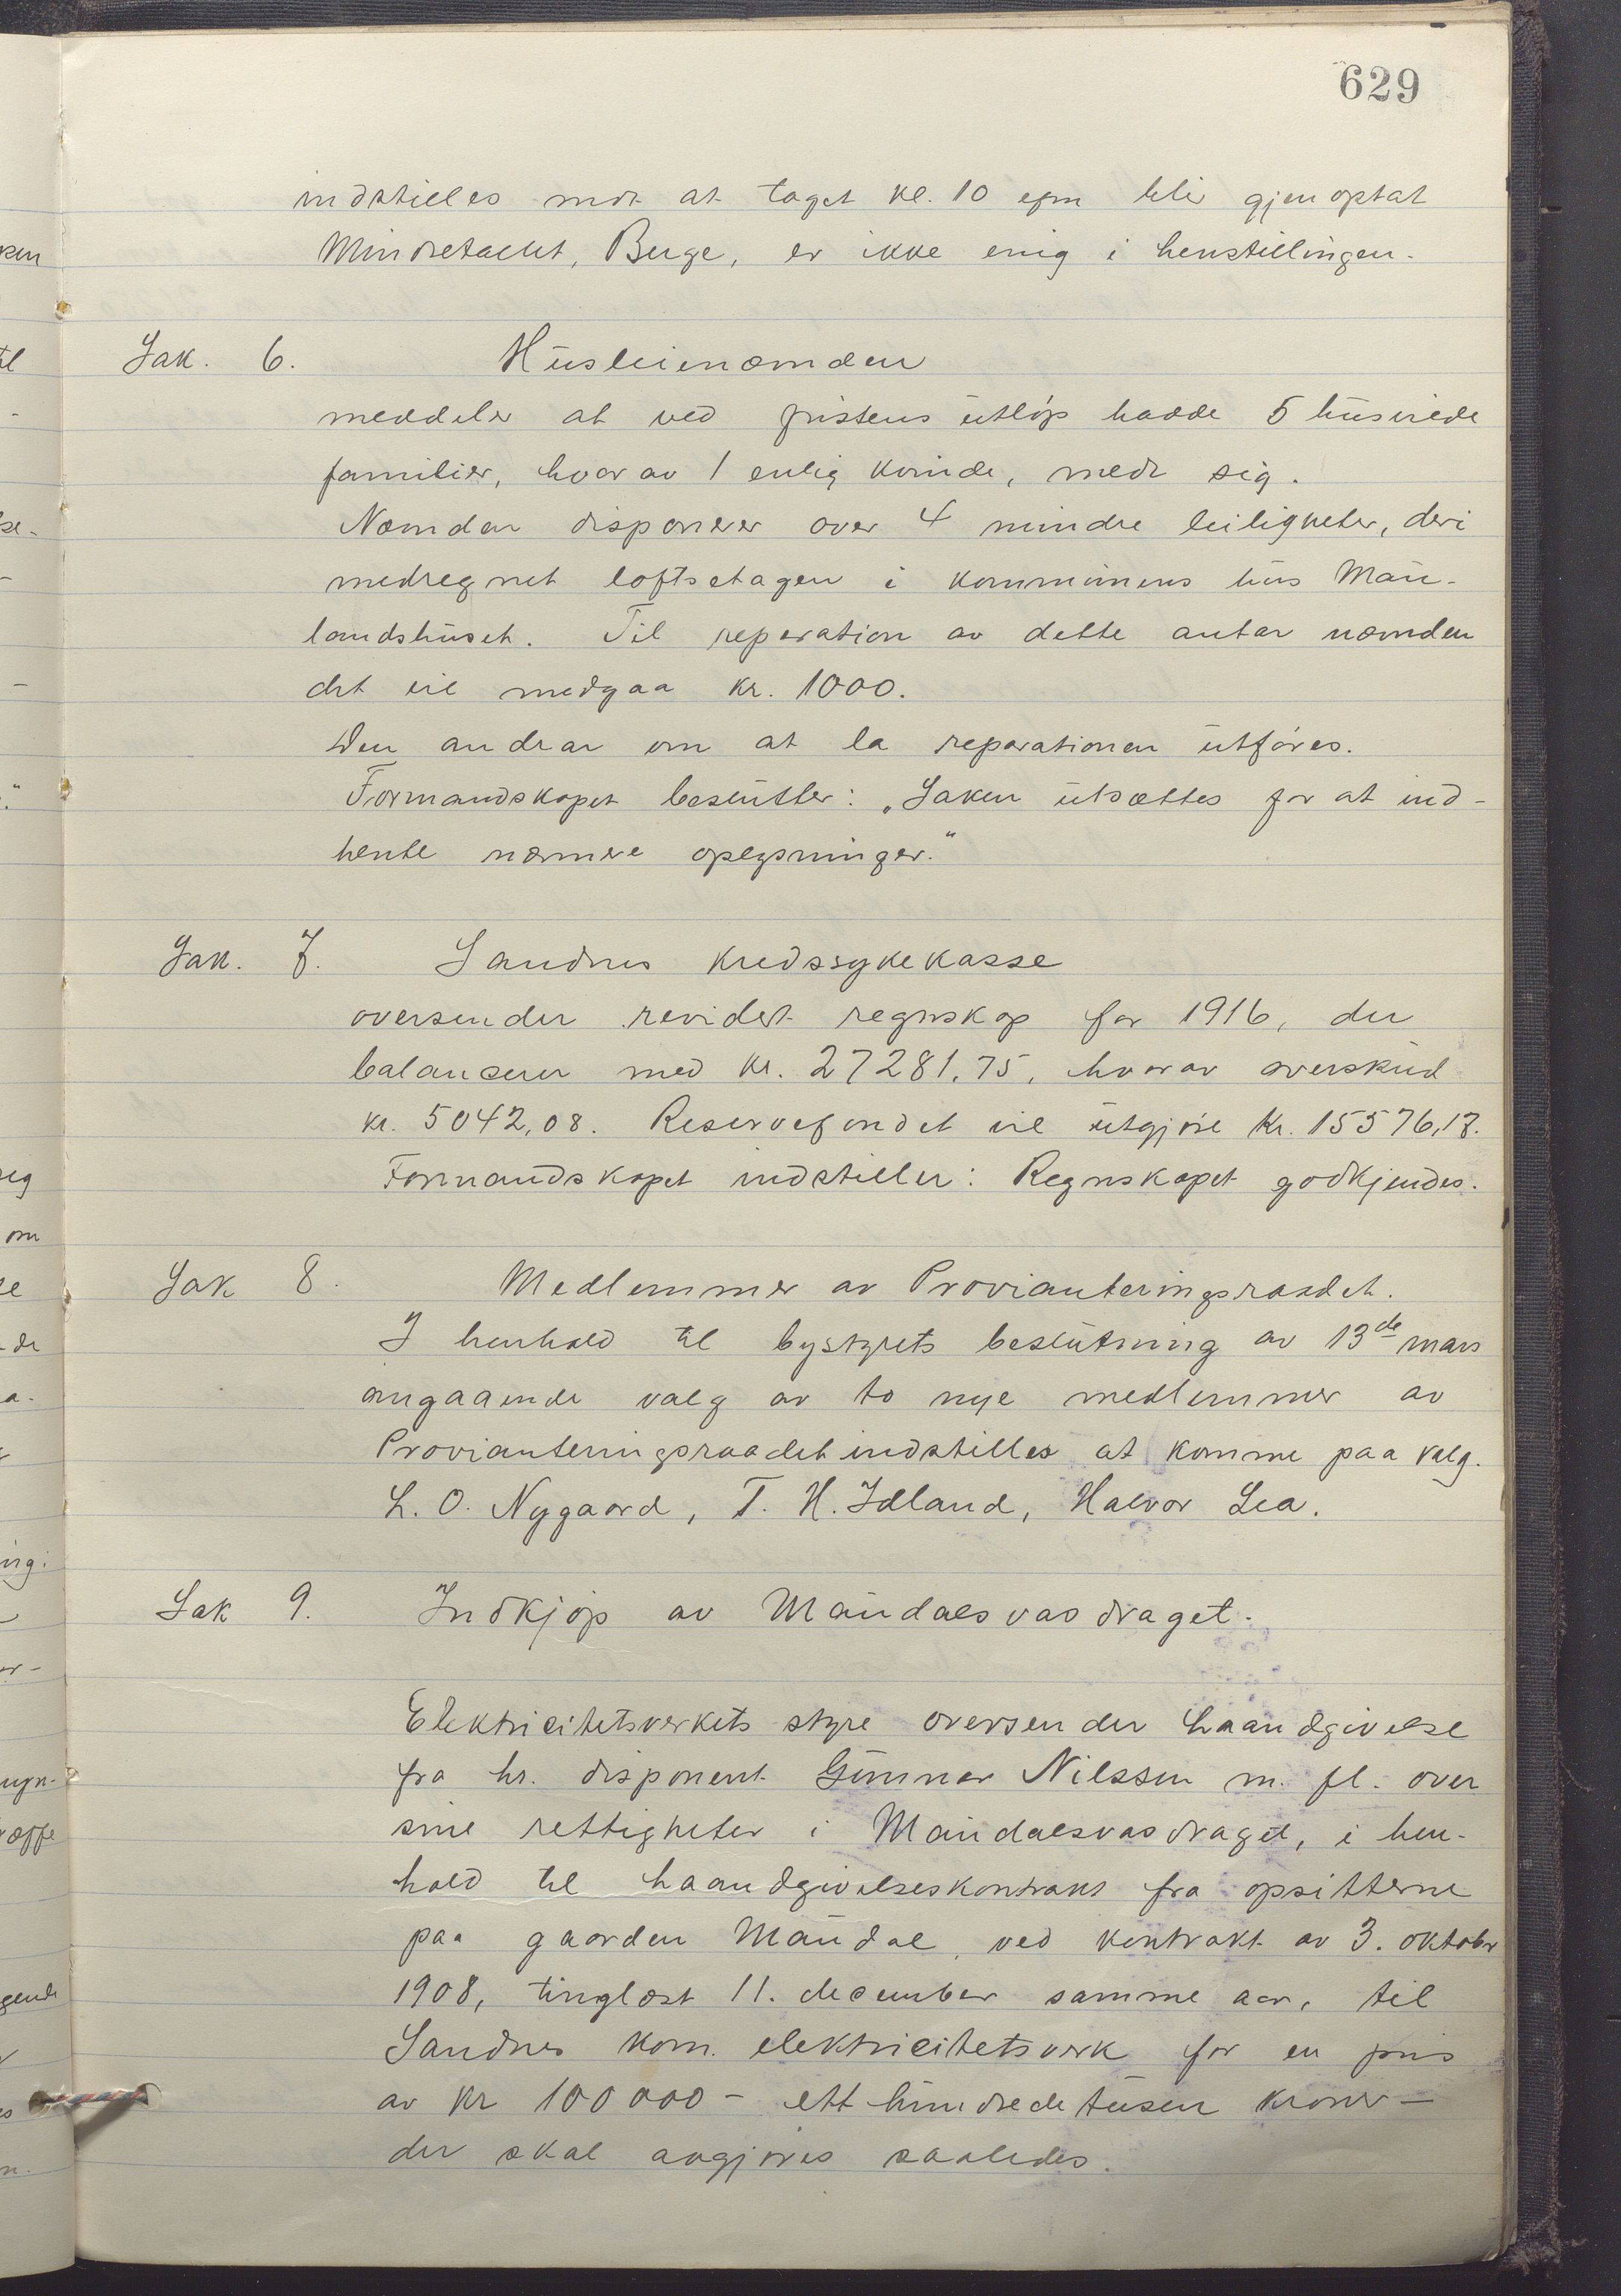 629
indstilles mot at toget kl. 10 efm blir gjenoptat
Mindretallet, Berge, er ikke enig i henstillingen.
Sak. 6. Husleienæmden
meddeler at ved fristens utløp hadde 5 husvilde
familier, hvorav 1 enlig kvinde, meldt sig.
Næmden disponerer over 4 mindre leiligheter, deri
medregnet loftsetagen i kommunens hus Mau-
landshuset. Til reparation av dette antar næmden
det vil medgaa kr. 1000.
Den andrar om at la reparationen utføres.
Formandskapet beslutter: „Saken utsættes for at ind-
hente nærmere oplysninger.“
Sak. 7. Sandnes kredssykekasse
oversender revidert regnskap for 1916, der
balanserer med kr. 27281.75, hvorav overskud
kr. 5042,08. Reservefondet vil utgjøre kr. 15576,17.
Formandskapet indstiller: Regnskapet godkjendes.
Sak 8. Medlemmer av Provianteringsraadet.
I henhold til bystyrets beslutning av 13de mars
angaaende valg av to nye medlemmer av
Provianteringsraadet indstilles at komme paa valg.
L. O. Nygaard, T. H. Idland, Halvor Lea.
Sak 9. Indkjøp av Maudalsvasdraget.
Elektricitetsverkets styre oversender haandgivelse
fra hr. disponent Gunnar Nilssen m. fl. over
sine rettigheter i Maudalsvasdraget, i hen-
hold til haandgivelseskontrakt fra opsitterne
paa gaarden Maudal, ved kontrakt av 3. oktober
1908, tinglæst 11. december samme aar, til
Sandnes kom. elektricitetsverk for en pris
av kr 100000 - ett hundrede tusen kroner -
der skal avgjøres saaledes.